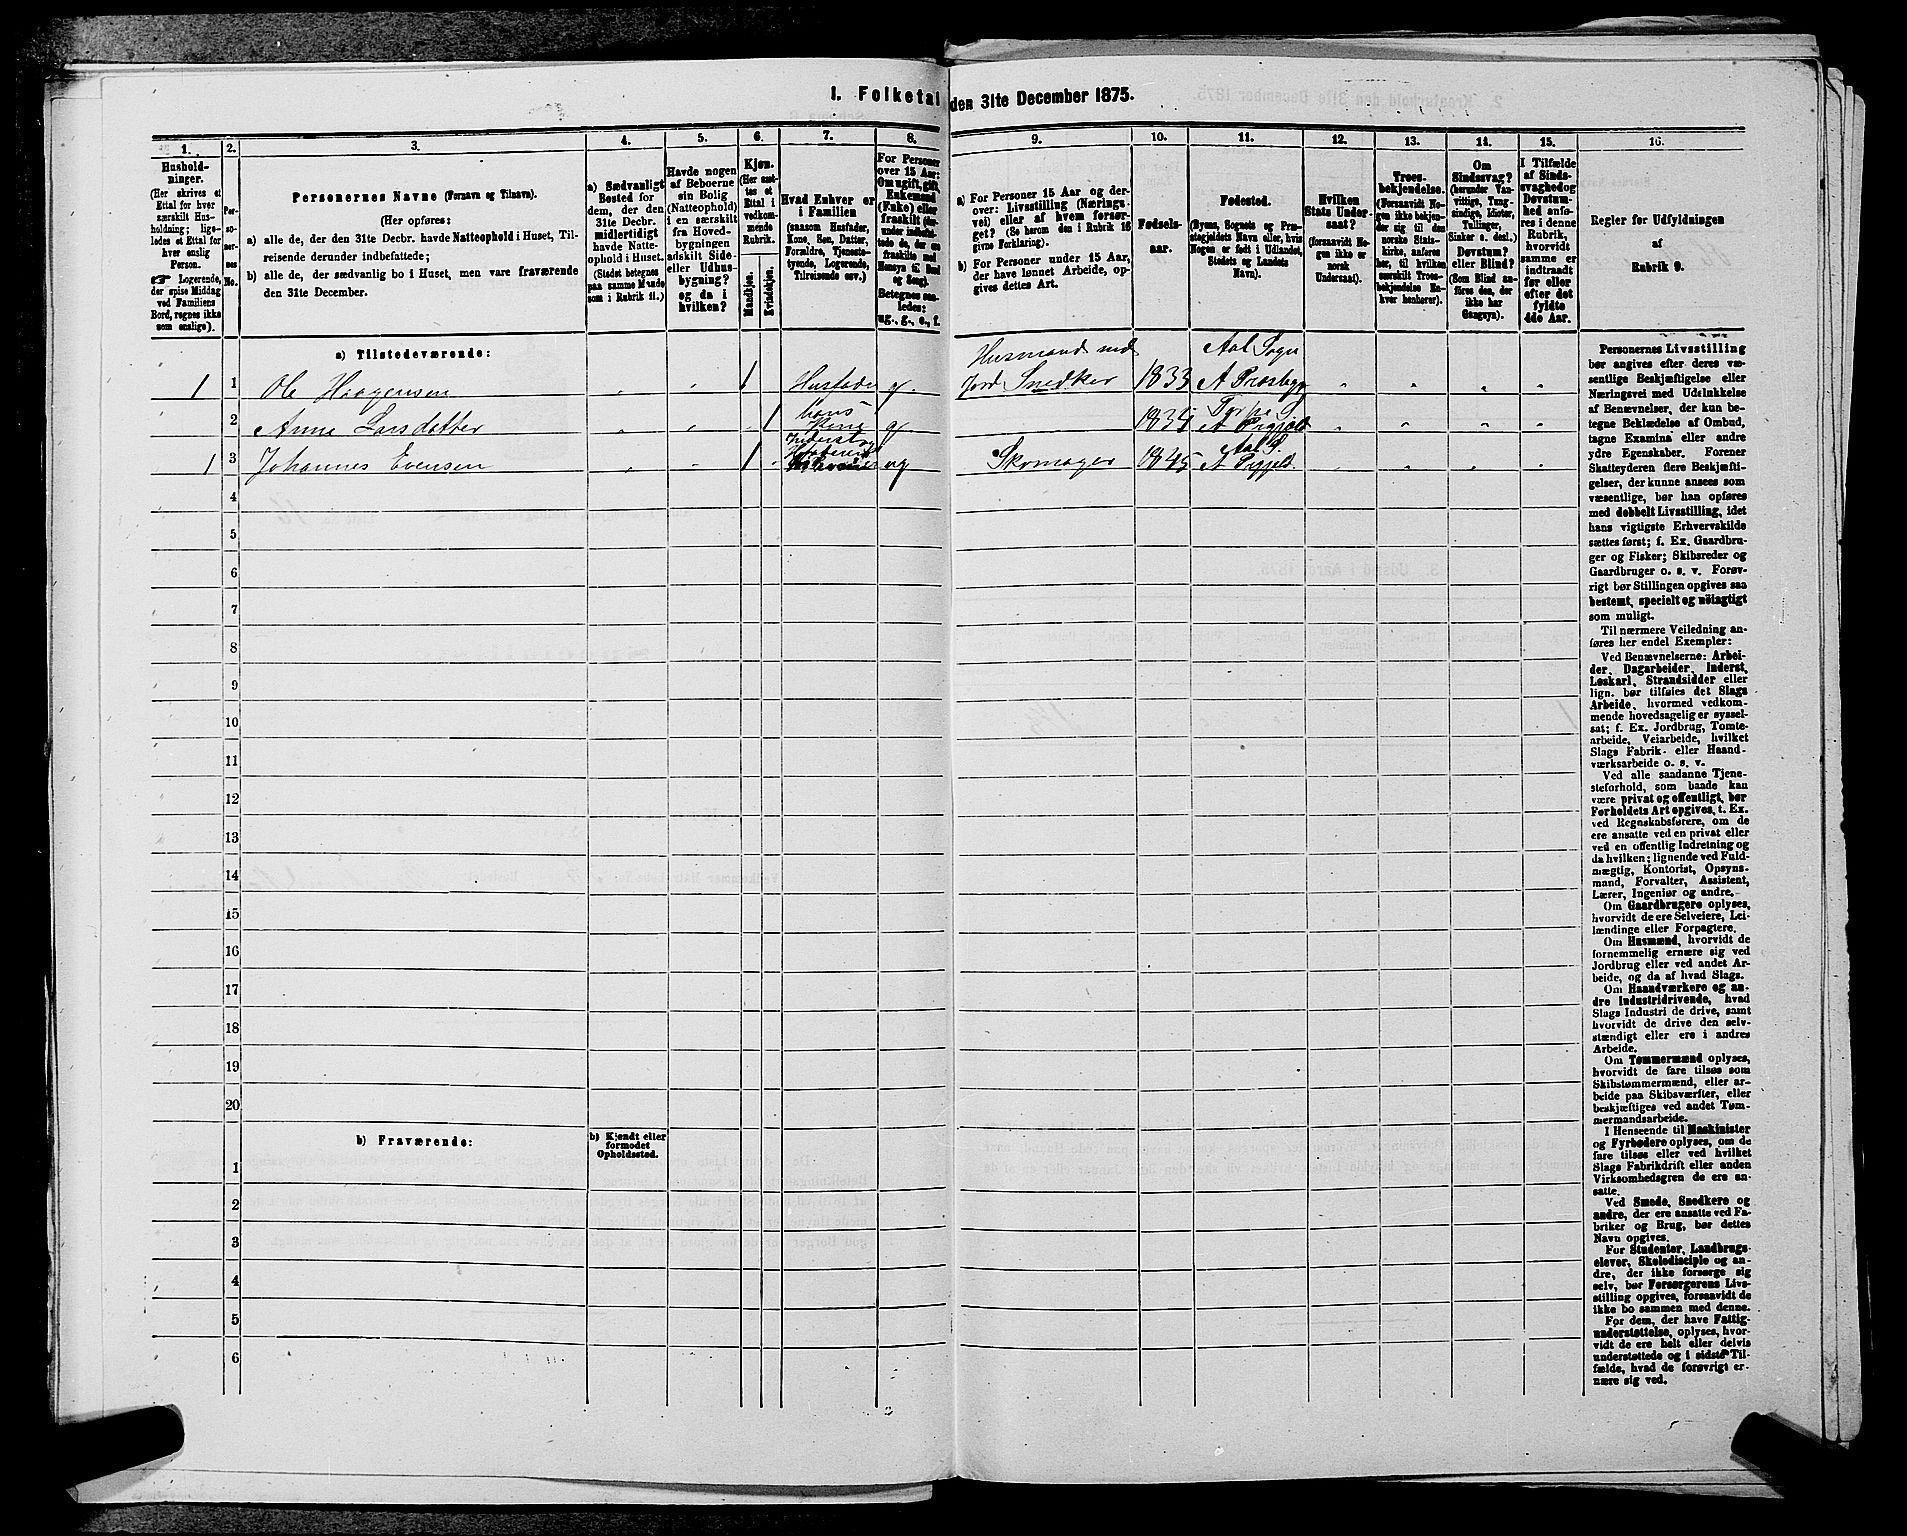 I. Folketal den 31te December 1875.
1.
2.
3.
4.
5.
6.
7.
8.
9.
10.
11.
12.
13.
14.
15.
16.
Hushold-
ninger.
(Her skrives et
Ettal for hver
særskilt Hus-
holdning; lige-
ledes et Ettal for
hver enslig
Person.
☞ Logerende,
der spise Middag
ved Familiens
Bord, regnes ikke
som enslige).
Per-
so-
ner-
nes
No.
Personernes Navne (Fornavn og Tilnavn).
(Her opføres:
a) alle de, der den 31te Decbr. havde Natteophold i Huset, Til-
reisende derunder indbefattede;
b) alle de, der sædvanlig bo i Huset, men vare fraværende
den 31te December.
a) Sædvanligt
Bosted for
dem, der den
31te Decbr.
midlertidigt
havde Natte-
ophold i Huset.
(Stedet betegnes
paa samme Maade
som i Rubrik 11.)
Havde nogen
af Beboerne
sin Bolig
(Natteophold)
i en særskilt
fra Hoved-
bygningen
adskilt Side-
eller Udhus-
bygning?
og da i
hvilken?
Kjøn.
(Her sæt-
tes et
Ettal i
vedkom-
mende
Rubrik.
Mandkjøn.
Kvindekjøn.
Hvad Enhver er
i Familien
(saasom Husfader,
Kone, Søn, Datter,
Forældre, Tjeneste-
tyende, Logerende,
Tilreisende osv.)
For Personer
over 15 Aar:
Om ugift, gift,
Enkemand
(Enke) eller
fraskilt (der-
under indbefat-
tede de, der ere
fraskilte med
Hensyn til Bord
og Seng).
Betegnes saa-
ledes:
ug., g., e., f.
a) For Personer 15 Aar og der-
over: Livsstilling (Nærings-
vei) eller af hvem forsør-
get? (Se herom den i Rubrik 16
givne Forklaring).
b) For Personer under 15 Aar,
der have lønnet Arbeide, op-
gives dettes Art.
Fødsels-
aar.
Fødested.
(Byens, Sognets og Præ-
stegjeldets Navn eller, hvis
Nogen er født i Udlandet,
Stedets og Landets
Navn).
Hvilken
Stats Under-
saat?
(forsaavidt No-
gen ikke er
norsk
Undersaat).
Troes-
bekjendelse.
(Forsaavidt No-
gen ikke bekjen-
der sig til den
norske Stats-
kirke, anføres
her, til hvilken
særskilt Troes-
bekjendelse En-
hver henhører).
Om
Sindssvag?
(herunder Van-
vittige, Tung-
sindige, Idioter,
Tullinger,
Sinker o. desl.)
Døvstum?
eller Blind?
(Som Blind an-
føres den, der
ikke har
Gangsyn).
I Tilfælde
af Sinds-
svaghed og
Døvstum-
hed anfø-
res i denne
Rubrik,
hvorvidt
samme er
indtraadt
før eller
efter det
fyldte
4de Aar.
Regler for Udfyldningen
af
Rubrik 9.
a) Tilstedeværende:
Husmand med
Aal Sogn
1 1 Ole Haagensen " " 1 Husfader g. Jord Snedker 1833 A Præstegj " " " "
hans
Torpe S.
2 Anne Larsdatter " " 1 Kone g. A Prgjeld " " " "
Inderst og
Aal S.
1 3 Johannes Evensen " " 1 ug Skomager 1845 A Prgjeld. " " " "
4
5
6
7
8
9
10
11
12
13
14
15
16
17
18
19
20
b) Fraværende:
b) Kjendt eller
formodet
Opholdssted.
1
2
3
4
5
6
Personernes Livsstilling
bør angives efter deres væ-
sentlige Beskjæftigelse eller
Næringsvei med Udelukkelse
af Benævnelser, der kun be-
tegne Beklædelse af Ombud,
tagne Examina eller andre
ydre Egenskaber. Forener
Skatteyderen flere Beskjæfti-
gelser, der kunne ansees som
væsentlige, bør han opføres
med dobbelt Livsstilling, idet
hans vigtigste Erhvervskilde
sættes først; f. Ex. Gaardbru-
ger og Fisker; Skibsreder og
Gaardbruger o. s. v. Forøv-
rigt bør Stillingen opgives saa
bestemt, specielt og nöiagtigt
som muligt.
Til nærmere Veiledning an-
føres her endel Exempler:
Ved Benævnelserne: Arbei-
der, Dagarbeider, Inderst,
Løskarl, Strandsidder eller
lign. bør tilføies det Slags
Arbeide, hvormed vedkom-
mende hovedsagelig er syssel-
sat; f. Ex. Jordbrug, Tomte-
arbeide, Veiarbeide, hvilket
Slags Fabrik- eller Haand-
værksarbeide o. s. v.
Ved alle saadanne Tjene-
steforhold, som baade kan
være privat og offentligt, bør
Forholdets Art opgives, t. Ex.
ved Regnskabsførere, om de
ere ansatte ved en privat eller
ved en offentlig Indretning og
da hvilken; lignende ved Fuld-
mægtig, Kontorist, Opsyns-
mand, Forvalter, Assistent,
Lærer, Ingeniør og andre.
Om Gaardbrugere oplyses,
hvorvidt de ere Selveiere, Lei-
lændinge eller Forpagtere.
Om Husmænd, hvorvidt de
fornemmelig ernære sig ved
Jordbrug eller ved andet Ar-
beide, og da af hvad Slags.
Om Haandværkere og an-
dre Industridrivende, hvad
Slags Industri de drive, samt
hvorvidt de drive den selv-
stændigt eller ere i andres
Arbeide.
Om Tømmermænd oplyses,
hvorvidt de fare tilsøs som
Skibstømmermænd, eller ar-
beide paa Skibsværfter, eller
beskjæftiges ved andet Tøm-
mermandsarbeide.
I Henseende til Maskinister
og Fyrbødere oplyses, om de
fare tilsøs eller ved hvilket
Slags Fabrikdrift eller anden
Virksomhedsgren de ere an-
satte.
Ved Smede, Snedkere og
andre, der ere ansatte ved Fa-
briker og Brug, bør dettes
Navn opgives.
For Studenter, Landbrugs-
elever, Skoledisciple og an-
dre, der ikke forsørge sig
selv, bør Forsørgerens Livs-
stilling opgives, forsaavidt de
ikke bo sammen med denne.
For dem, der have Fattig-
understøttelse, oplyses, hvor-
vidt de ere helt eller delvis
understøttede og i sidste Til-
fælde, hvad de forøvrigt er-
nære sig ved.